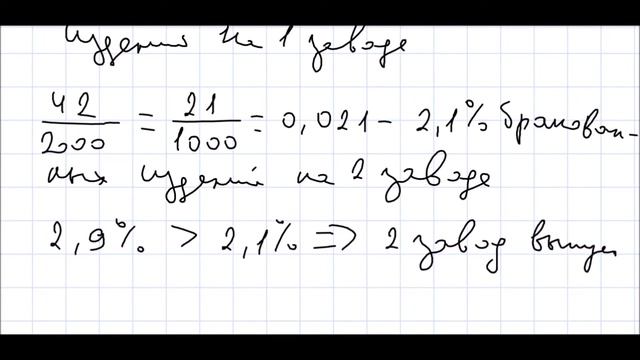 изделий на 1 заводе
42/2000 = 21/1000 = 0,021 - 2,1% бракован-
ных изделий на 2 заводе
2,9% > 2,1% => 2 завод выпус